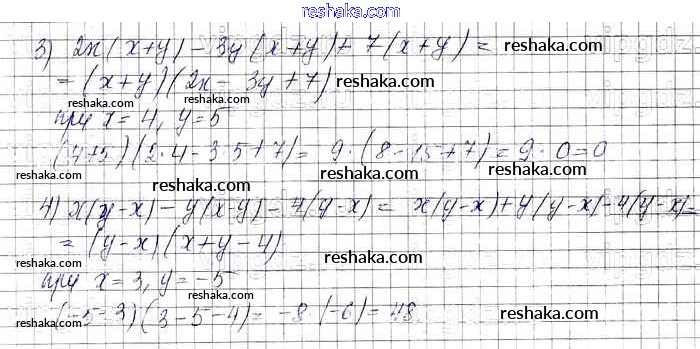 reshaka.com
3) 2x(x+y) - 3y(x+y) + 7(x+y) = reshaka.com
= (x+y)(2x - 3y + 7)
reshaka.com reshaka.com
при x = 4, y = 5
(4+5)(2·4 - 3·5 + 7) = 9·(8 - 15 + 7) = 9·0 = 0
reshaka.com reshaka.com
4) x(y-x) - y(x-y) - 4(y-x) = x(y-x) + y(y-x) - 4(y-x) =
= (y-x)(x+y-4) reshaka.com reshaka.com
при x = 3, y = -5
reshaka.com
(-5-3)(3-5-4) = -8·(-6) = 48
reshaka.com reshaka.com